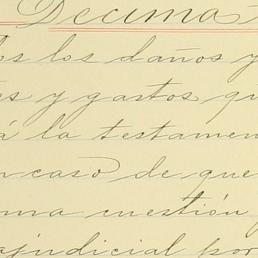 Decima
los los daños y
es y gastos qu
á la testamen
n caso de que
ma cuestión
rajudicial por